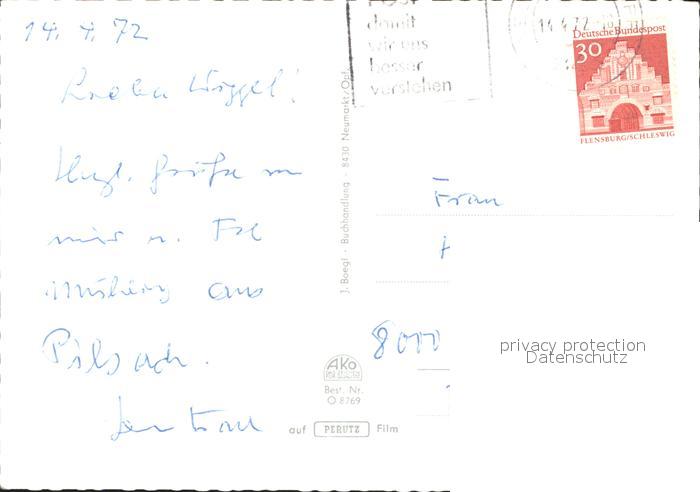 14. 4. 72
Herzl. Grüße von
mir u. Frl.
aus
Pilsach.
J. Boegl · Buchhandlung · 8430 Neumarkt/Opf.
AKO
Best. Nr.
O 8769
auf PERUTZ Film
damit
wir uns
besser
verstehen
14.4.72
Deutsche Bundespost
30
FLENSBURG/SCHLESWIG
Frau
8000
privacy protection
Datenschutz